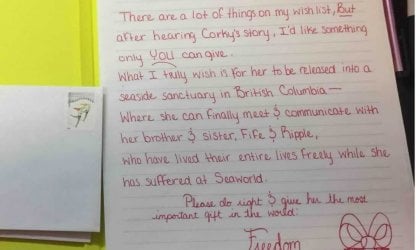 There are a lot of things on my wish list, But
after hearing Corky's story, I'd like something
only YOU can give.
What I truly wish is for her to be released into a
seaside sanctuary in British Columbia—
Where she can finally meet & communicate with
her brother & sister, Fife & Ripple,
who have lived their entire lives freely while she
has suffered at Seaworld.
Please do right & give her the most
important gift in the world:
Freedom